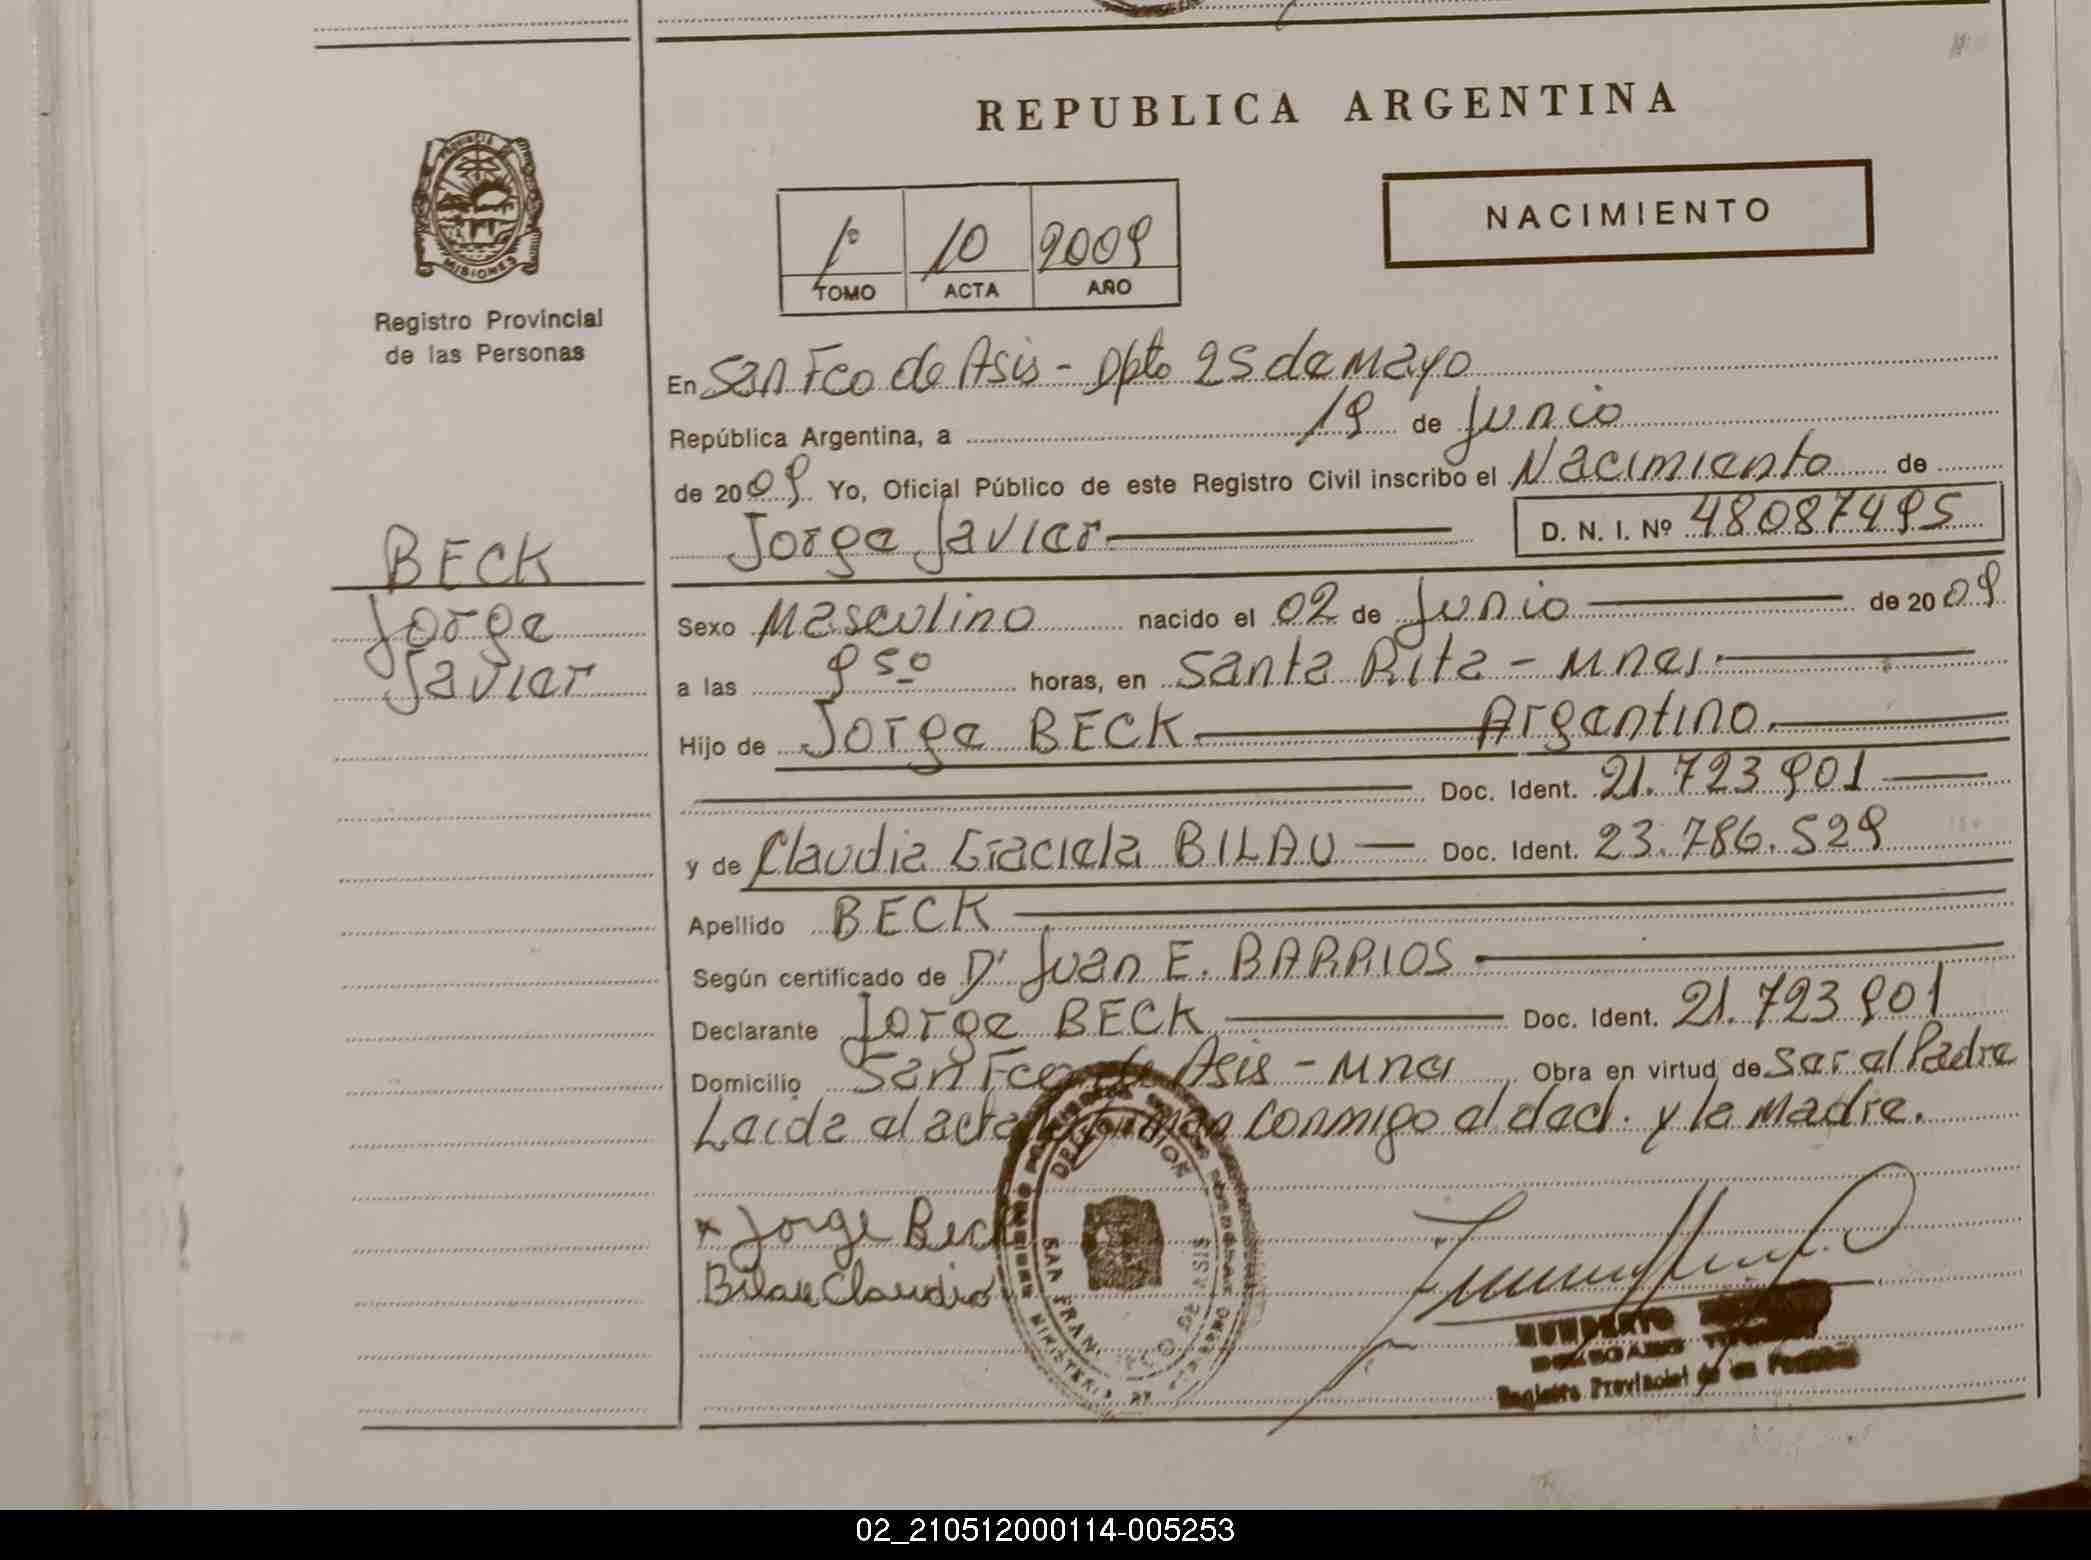 REPUBLICA ARGENTINA
PROVINCIA DE
MISIONES
Registro Provincial
de las Personas
NACIMIENTO
1º 10 2009
TOMO ACTA AÑO
En San Fco de Asis - Dpto 25 de Mayo
República Argentina, a 19 de Junio
de 2009 Yo, Oficial Público de este Registro Civil inscribo el Nacimiento de
Jorge Javier D. N. I. Nº 48087495
BECK
Jorge
Javier
Sexo Masculino nacido el 02 de Junio de 2009
a las 9 50 horas, en Santa Rita - Mnes.
Hijo de Jorge BECK Argentino.
Doc. Ident. 21.723.901
y de Claudia Graciela BILAU Doc. Ident. 23.786.529
Apellido BECK
Según certificado de Dr Juan E. BARRIOS
Declarante Jorge BECK Doc. Ident. 21.723.901
Domicilio San Fco de Asis - Mnes Obra en virtud de Ser el Padre
Leida el acta firman conmigo el decl. y la Madre.
x Jorge Beck
Bilau Claudia
SAN FRAN CO DE ASIS
Registro Provincial de las Personas
02_210512000114-005253